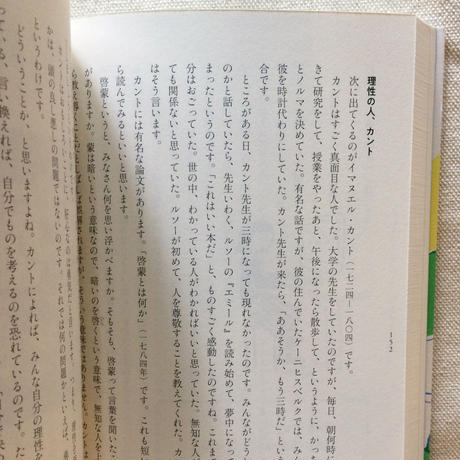 152
理性の人、カント
次に出てくるのがイマヌエル・カント(一七二四—一八〇四)です。
カントはすごく真面目な人でした。大学の先生をしていたのですが、毎日、朝何時に
きて研究をして、授業をやったあと、午後になったら散歩して、というように、かっ
とノルマを決めていた。有名な話ですが、彼の住んでいたケーニヒスベルクでは、み
彼を時計代わりにしていた。カント先生が来たら、「ああそうか、もう三時だ」とい
合です。
ところがある日、カント先生が三時になっても現れなかったのです。みんながどう
のかと話していたら、先生いわく、ルソーの『エミール』を読み始めて、夢中にな
まったというのです。「これはいい本だ」と、ものすごく感動したのですね。これま
分はおごっていた。世の中、わかっている人がわかればいいと思っていた。無知な人
ても関係ないと思っていた。ルソーが初めて、人を尊敬することを教えてくれた。カ
はそう言います。
カントには有名な論文があります。『啓蒙とは何か』(一七八四年)です。これも短
ら読んでみるといいと思います。
啓蒙というと、みなさん何を思い浮かべますか。そもそも、啓蒙って言葉を聞いた
がありますか。蒙は暗いという意味なので、暗いのを啓くという意味で、無知な人を
ら教え導くことだとしばしば誤解されますが、そういう意味ではありません。カントは
かは、頭の良し悪しの問題ではないのです。それでは何の問題かといえば、
というわけです。
どういうことか、と思いますよね。カントによれば、みんな自分の理性
っている。言い換えれば、自分でものを考えるのを恐れているのです。だ